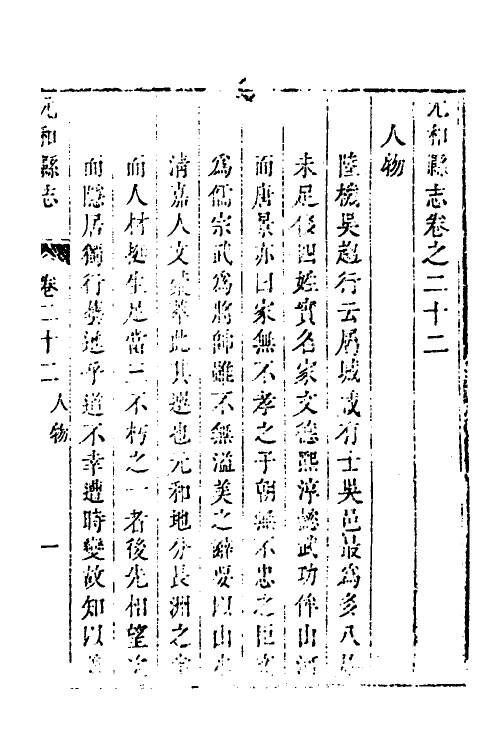 元和縣志卷之二十二
人物
陸機吳趨行云屬城咸有士吳邑最爲多八族
未足侈四姓實名家文德熙淳懿武功侔山河
而唐景亦曰家無不孝之子朝無不忠之臣文
爲儒宗武爲將帥雖不無溢美之辭要以山水
清嘉人文萃此其選也元和地分長洲之
而人材挺生足當三不朽之一者後先相望
而隱居獨行乎道不幸遭時變故知以
元和縣志
卷二十二
人物
一